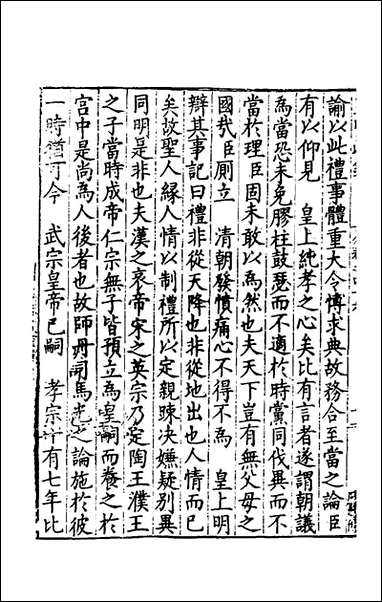 諭以此禮事體重大令博求典故務合至當之論臣
有以仰見　皇上純孝之心矣比有言者遂謂朝議
為當恐未免膠柱鼓瑟而不適於時黨同伐異而不
當於理臣固未敢以為然也夫天下豈有無父母之
國哉臣厠立　清朝發憤痛心不得不為　皇上明
辯其事記曰禮非從天降也非從地出也人情而已
矣故聖人緣人情以制禮所以定親踈决嫌疑别異
同明是非也夫漢之哀帝宋之英宗乃定陶王濮王
之子當時成帝仁宗無子皆預立為皇嗣而養之於
宮中是尚為人後者也故師丹司馬光之論施於彼
一時猶可今　武宗皇帝已嗣　孝宗十有七年比